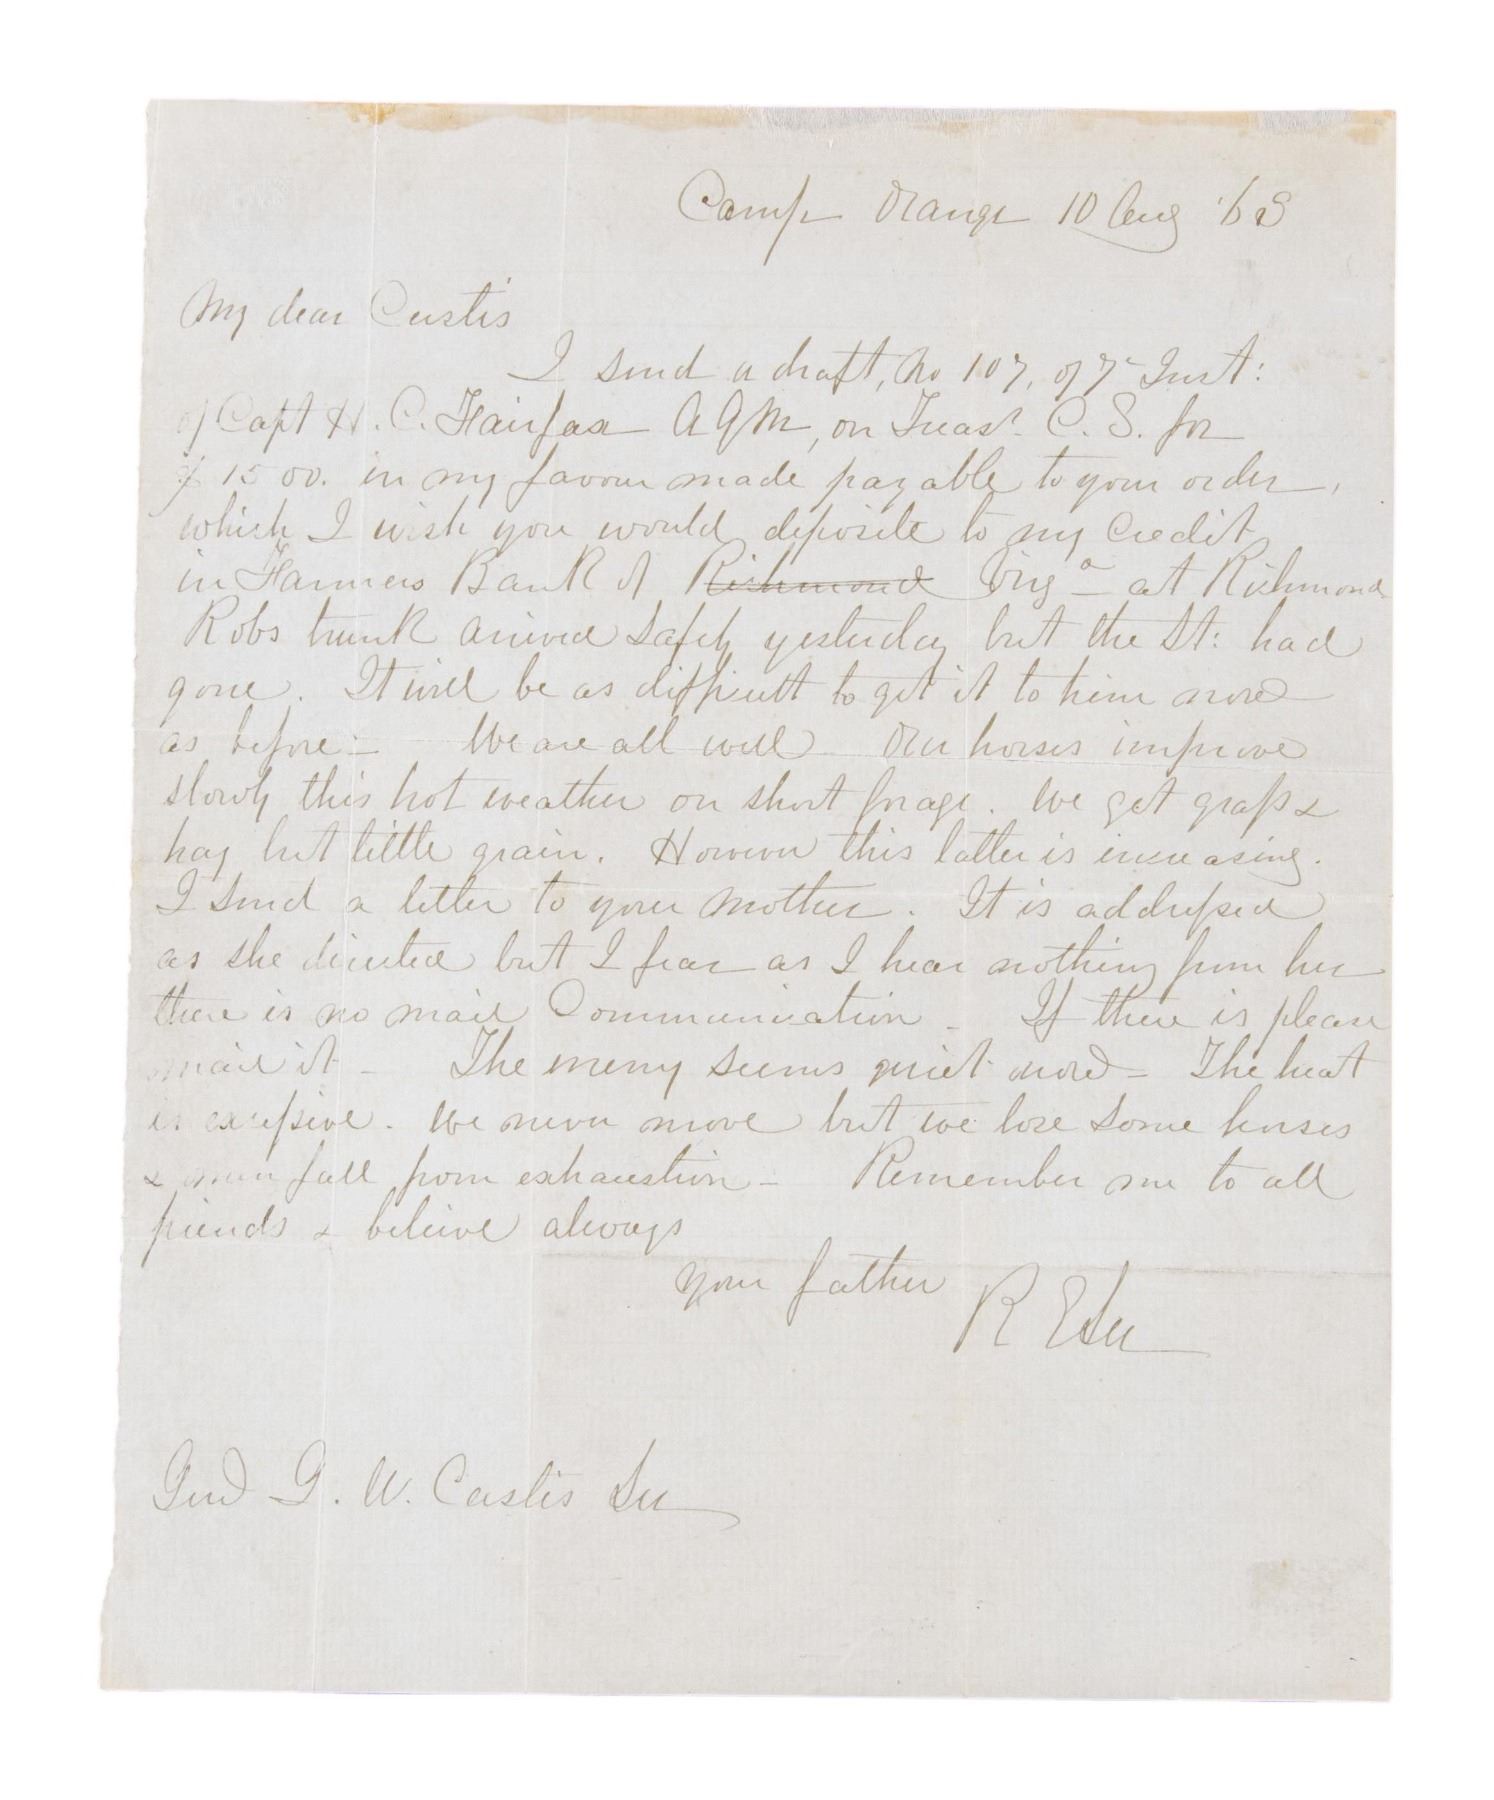 Camp Orange 10 Aug '63
My dear Custis
I send a draft, No 107, of 7 Inst:
of Capt H. C. Fairfax AQM, on Treasr. C. S. for
$ 1500. in my favour made payable to your order,
which I wish you would deposite to my credit
in Farmers Bank of ~~Richmond~~ Virga at Richmond
Robs trunk arrived safely yesterday but the Lt: had
gone. It will be as difficult to get it to him now
as before — We are all well Our horses improve
slowly this hot weather on short forage. We get grass &
hay but little grain. However this latter is increasing.
I send a letter to your mother. It is addressed
as she directed but I fear as I hear nothing from her
there is no mail Communication — If there is please
mail it — The enemy seems quiet now — The heat
is excessive. We never move but we lose some horses
& men fall from exhaustion — Remember me to all
friends & beleive always
your father R E Lee
Genl G. W. Custis Lee